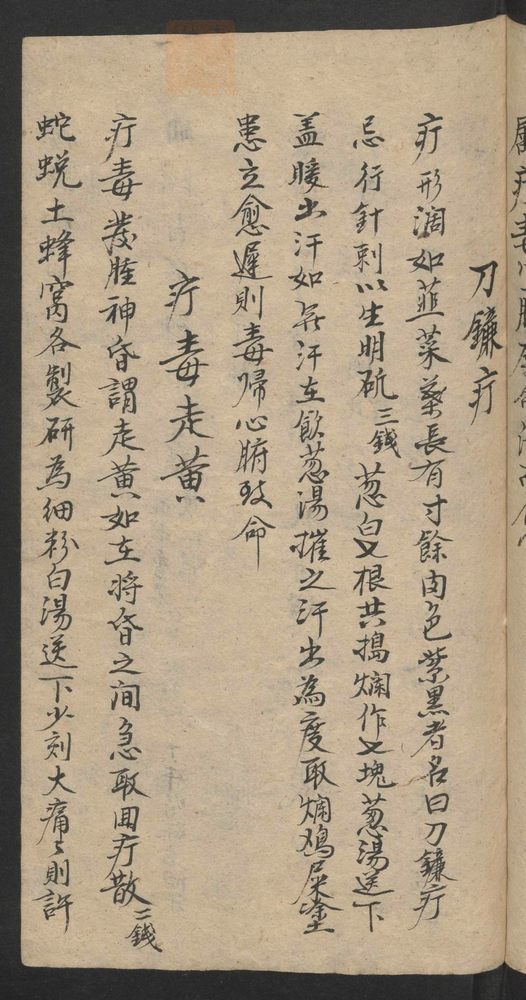 刀鐮疔
疔形濶如韮菜葉長有寸餘肉色紫黑者名曰刀鐮疔
忌行針刺以生明矾三錢葱白又根共搗爛作又塊葱湯送下
盖暖出汗如無汗在飲葱湯摧之汗出為度取爛鸡屎塗
患立愈遲則毒歸心腑致命
疔毒走黃
疔毒發腫神昏謂走黃如在將昏之间急取囬疔散二錢
蛇蜕土蜂窩各製研為细粉白湯送下少刻大痛〻則許